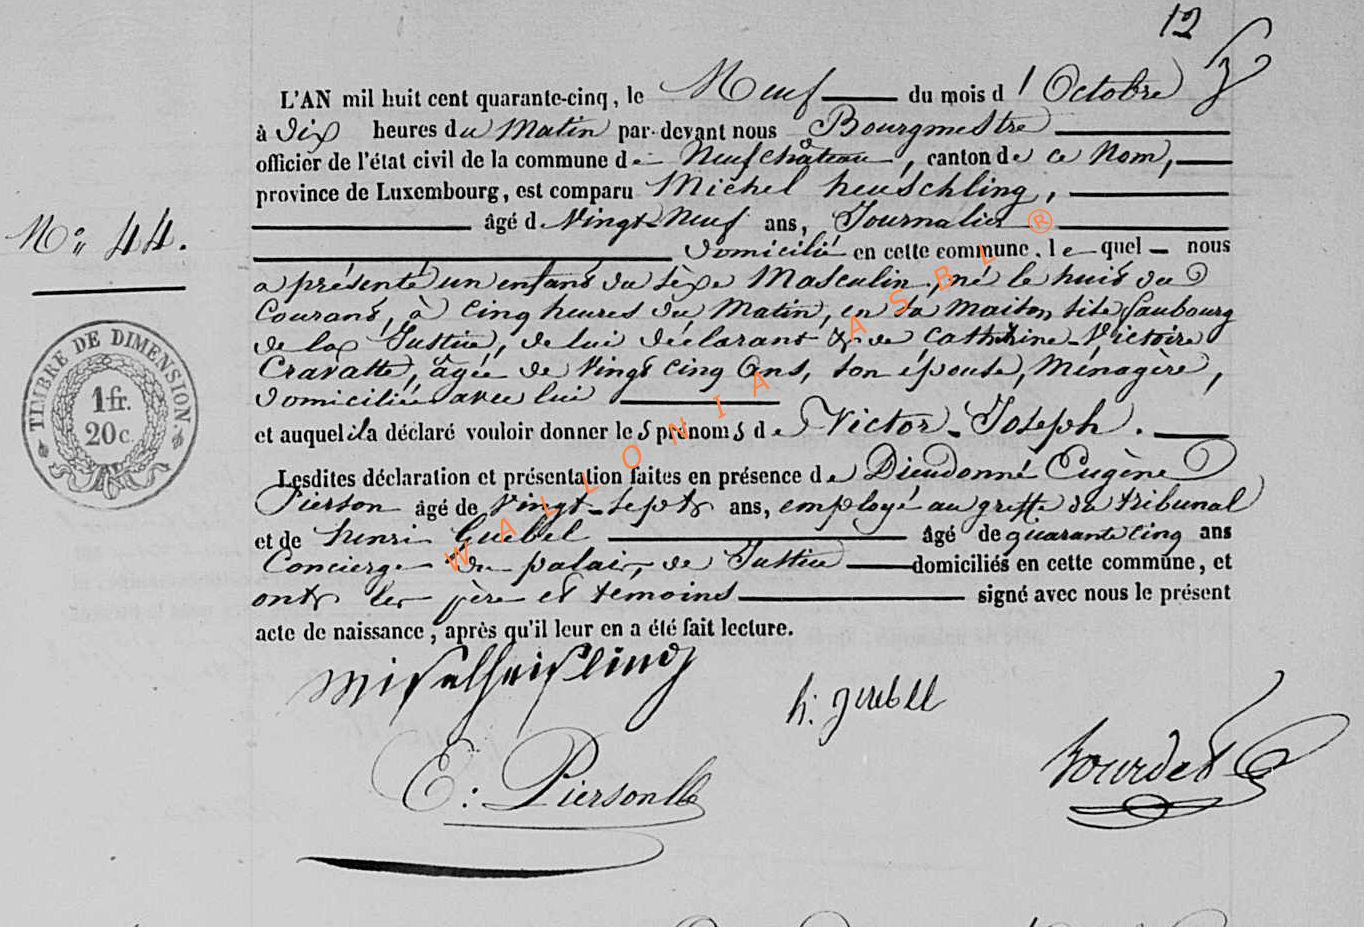 12
L'AN mil huit cent quarante-cinq, le Neuf du mois d'Octobre
à dix heures du Matin par-devant nous Bourgmestre
officier de l'état civil de la commune de Neufchâteau, canton de ce Nom,
province de Luxembourg, est comparu Michel heuschling,
N° 44.
âgé de Vingt-Neuf ans, Journalier
domicilié en cette commune, lequel nous
a présenté un enfant du sèxe Masculin, né le huit du
Courant, à Cinq heures du Matin, en sa maison site faubourg
de la Justice, de lui déclarant & de Cathérine-Victoire
Cravatte, âgée de Vingt cinq Ans, son épouse, Ménagère,
domiciliée avec lui
et auquel il a déclaré vouloir donner les prénoms de Victor-Joseph.
Lesdites déclaration et présentation faites en présence de Dieudonné Eugène
Pierson âgé de Vingt-sept ans, employé au greffe du tribunal
et de henri Guebel âgé de quarante cinq ans
Concierge du palais de Justice domiciliés en cette commune, et
ont les père et témoins signé avec nous le présent
acte de naissance, après qu'il leur en a été fait lecture.
h. guebel
E: Pierson
Bourdet
TIMBRE DE DIMENSION.
1 fr.
20 c.
WALLONIA ASBL ®